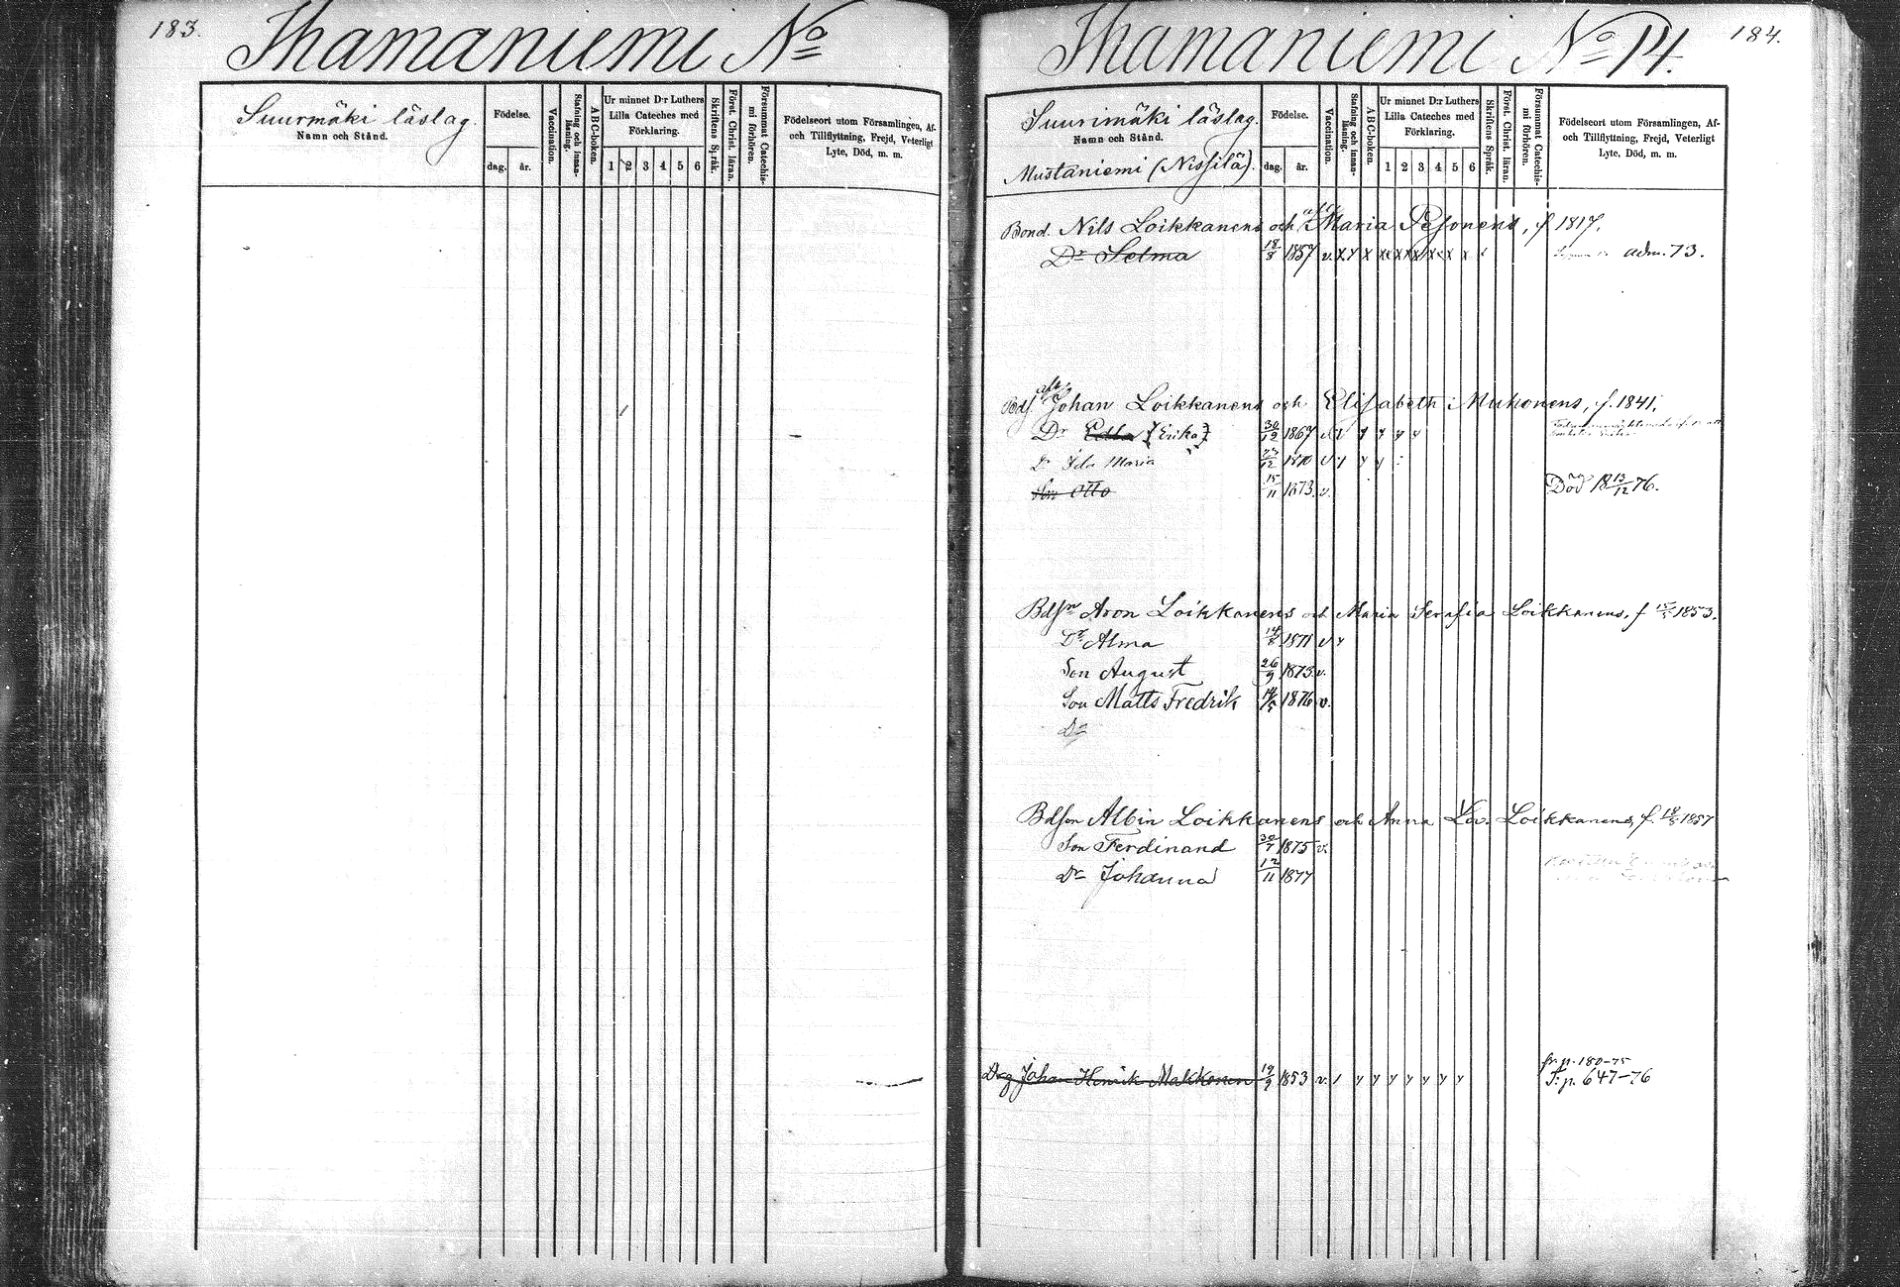 183.
Ihamaniemi No
Suurmäki läslag.
Namn och Stånd.
Födelse.
dag.
år.
Vaccination.
Stafning och innan-
läsning.
ABC-boken.
Ur minnet D:r Luthers
Lilla Cateches med
Förklaring.
1 2 3 4 5 6
Skriftens Språk.
Först. Christ. läran.
Försummat Catechis-
mi förhören.
Födelseort utom Församlingen, Af-
och Tillflyttning, Frejd, Veterligt
Lyte, Död, m. m.
184.
Ihamaniemi No 14.
Suurimäki läslag.
Namn och Stånd.
Mustaniemi (Nissilä).
Födelse.
dag.
år.
Vaccination.
Stafning och innan-
läsning.
ABC-boken.
Ur minnet D:r Luthers
Lilla Cateches med
Förklaring.
1 2 3 4 5 6
Skriftens Språk.
Först. Christ. läran.
Försummat Catechis-
mi förhören.
Födelseort utom Församlingen, Af-
och Tillflyttning, Frejd, Veterligt
Lyte, Död, m. m.
Bond. Nils Loikkanens och Maria Pesonens, f 1817.
Dr Selma 18/8 1857 v. x y x x x x x x x adm. 73.
Bdf. Johan Loikkanens och Elisabeth Muhonens, f. 1841.
Dr Edla (Erika) 30/12 1867 v y y y y
Dr Ida Maria 23/12 1870 v y y y
Son Otto 15/11 1873. v. Död 13/12 76.
Bdsn Aron Loikkanens och Maria Serafia Loikkanens, f 1853.
Dr Alma 1871 v y
Son August 26/9 1873. v.
Son Matts Fredrik 1876 v.
Dr
Bdson Albin Loikkanens och Anna Lov. Loikkanens, f. 1857
Son Ferdinand 30/7 1875 v.
Dr Johanna 12/11 1877
fr. p. 180-75
Drg Johan Henrik Makkonen 19/9 1853 v. y y y y y y y T. p. 647-76